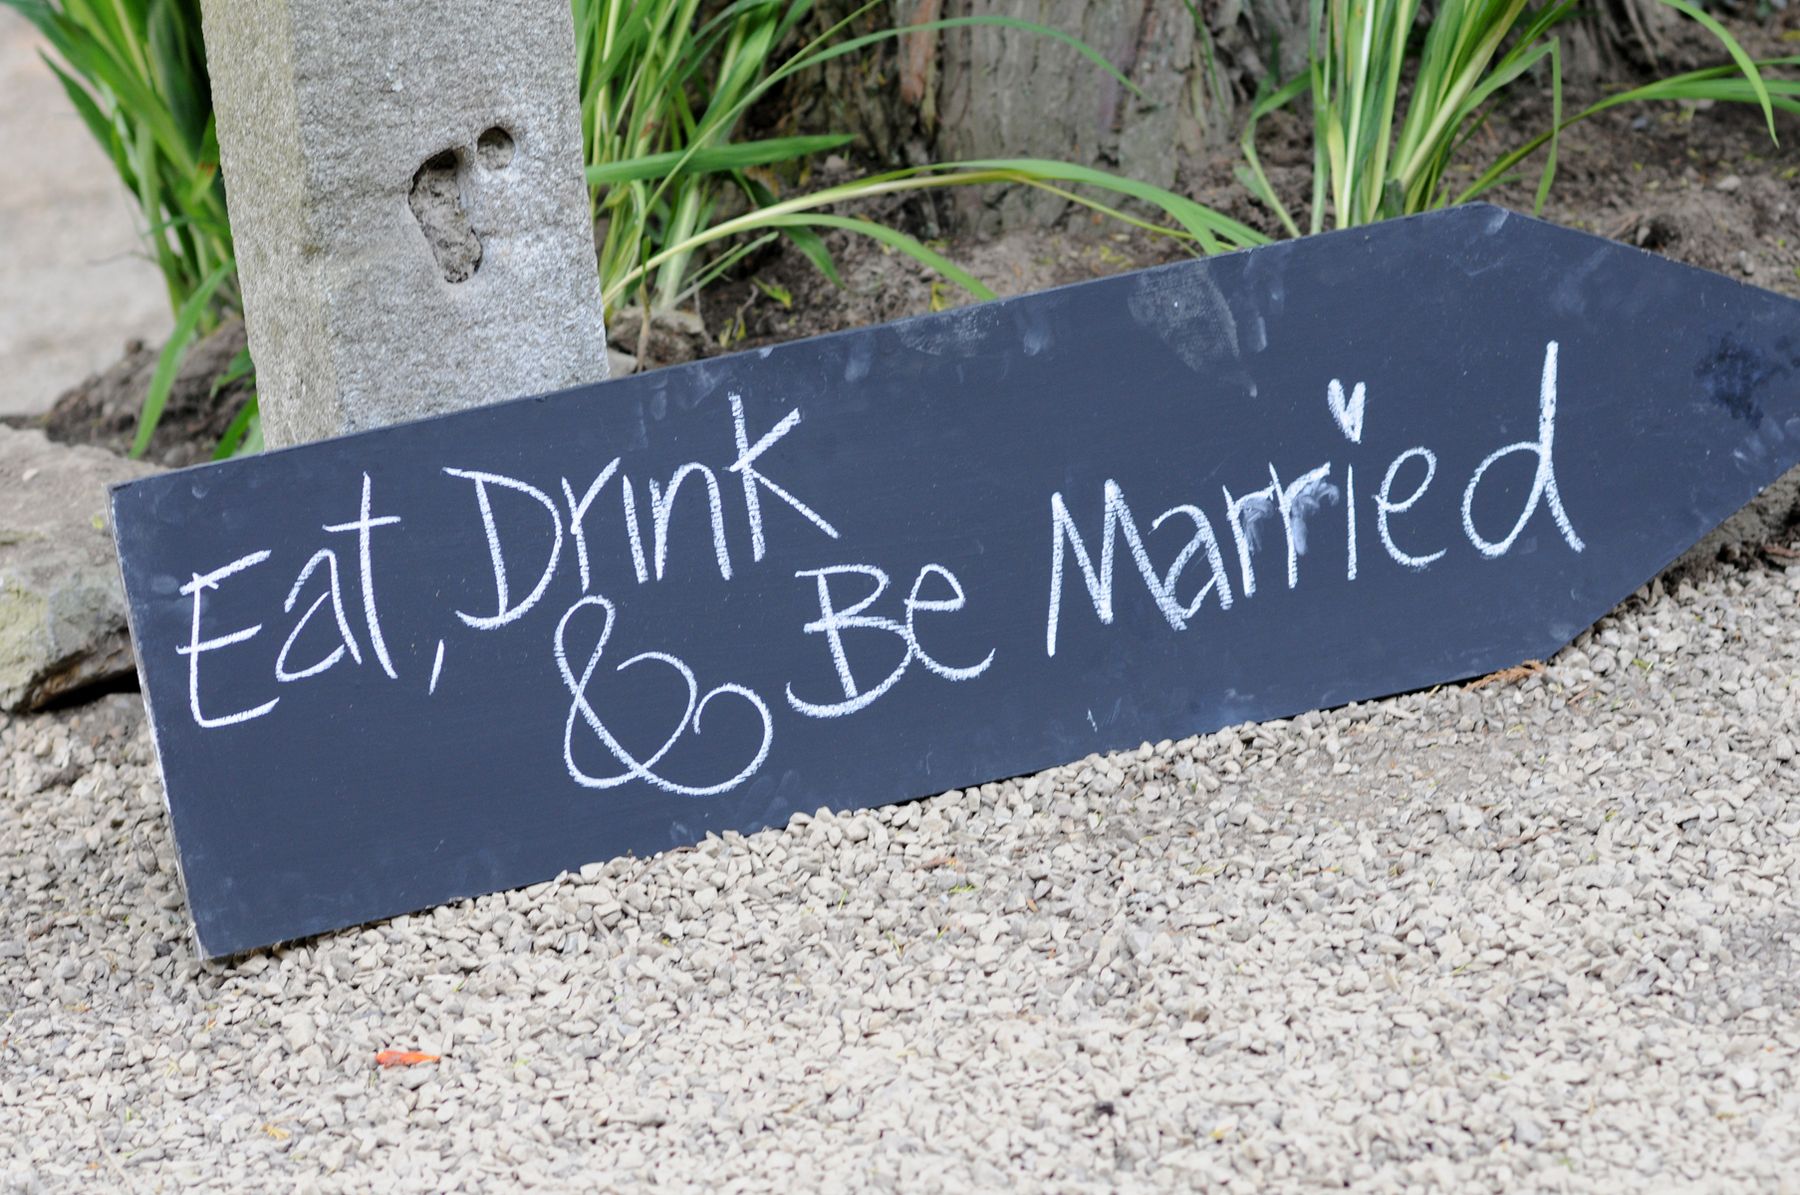 Eat, Drink
& Be Married